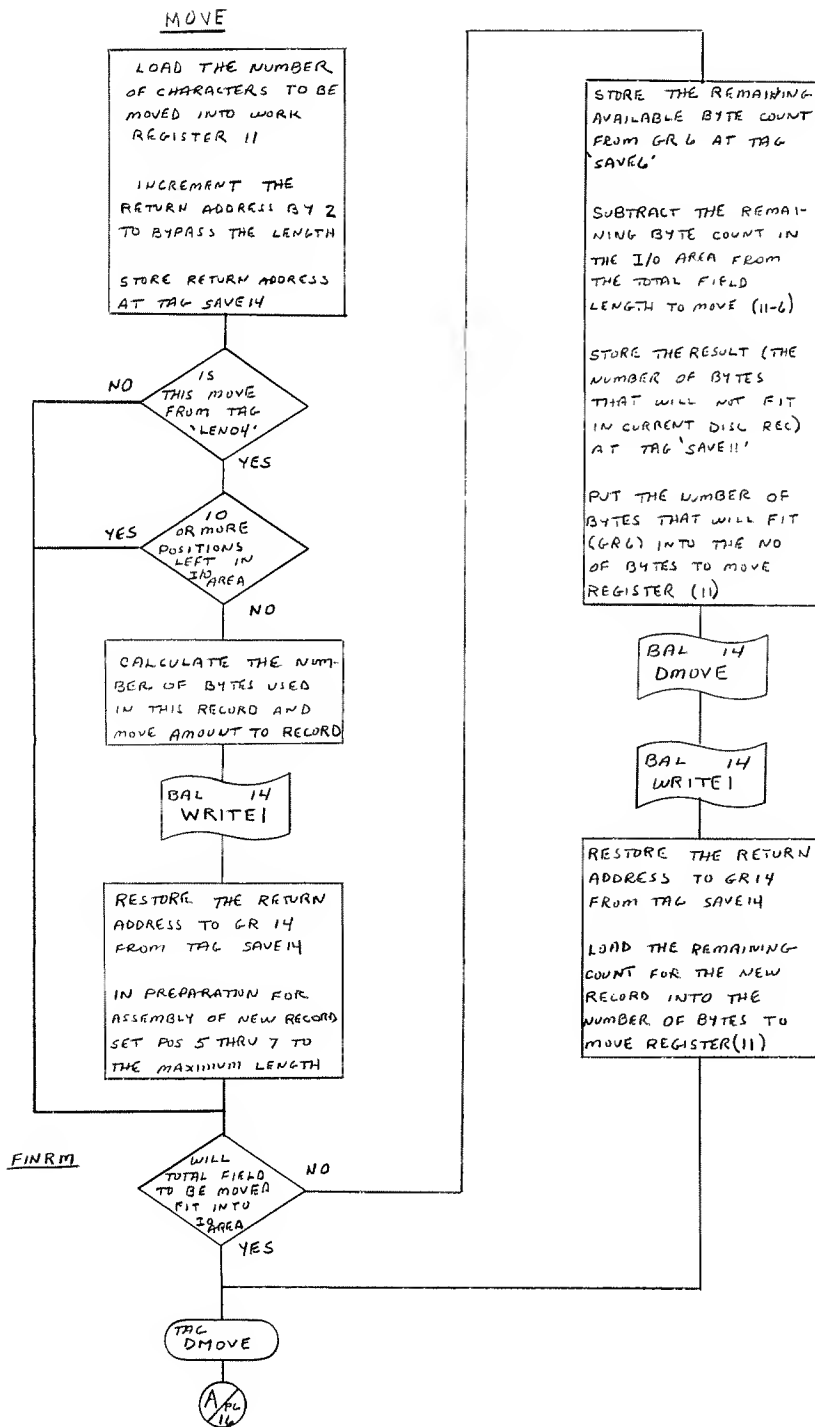 MOVE
LOAD THE NUMBER
OF CHARACTERS TO BE
MOVED INTO WORK
REGISTER 11
INCREMENT THE
RETURN ADDRESS BY 2
TO BYPASS THE LENGTH
STORE RETURN ADDRESS
AT TAG SAVE14
IS
THIS MOVE
FROM TAG
'LEN04'
NO
YES
10
OR MORE
POSITIONS
LEFT IN
I/O
AREA
YES
NO
CALCULATE THE NUM-
BER OF BYTES USED
IN THIS RECORD AND
MOVE AMOUNT TO RECORD
BAL 14
WRITE1
RESTORE THE RETURN
ADDRESS TO GR 14
FROM TAG SAVE14
IN PREPARATION FOR
ASSEMBLY OF NEW RECORD
SET POS 5 THRU 7 TO
THE MAXIMUM LENGTH
FINRM
WILL
TOTAL FIELD
TO BE MOVED
FIT INTO
I/O
AREA
NO
YES
TAG
DMOVE
A/PG
16
STORE THE REMAINING
AVAILABLE BYTE COUNT
FROM GR 6 AT TAG
'SAVE6'
SUBTRACT THE REMAI-
NING BYTE COUNT IN
THE I/O AREA FROM
THE TOTAL FIELD
LENGTH TO MOVE (11-6)
STORE THE RESULT (THE
NUMBER OF BYTES
THAT WILL NOT FIT
IN CURRENT DISC REC)
AT TAG 'SAVE11'
PUT THE NUMBER OF
BYTES THAT WILL FIT
(GR6) INTO THE NO
OF BYTES TO MOVE
REGISTER (11)
BAL 14
DMOVE
BAL 14
WRITE1
RESTORE THE RETURN
ADDRESS TO GR14
FROM TAG SAVE14
LOAD THE REMAINING
COUNT FOR THE NEW
RECORD INTO THE
NUMBER OF BYTES TO
MOVE REGISTER(11)